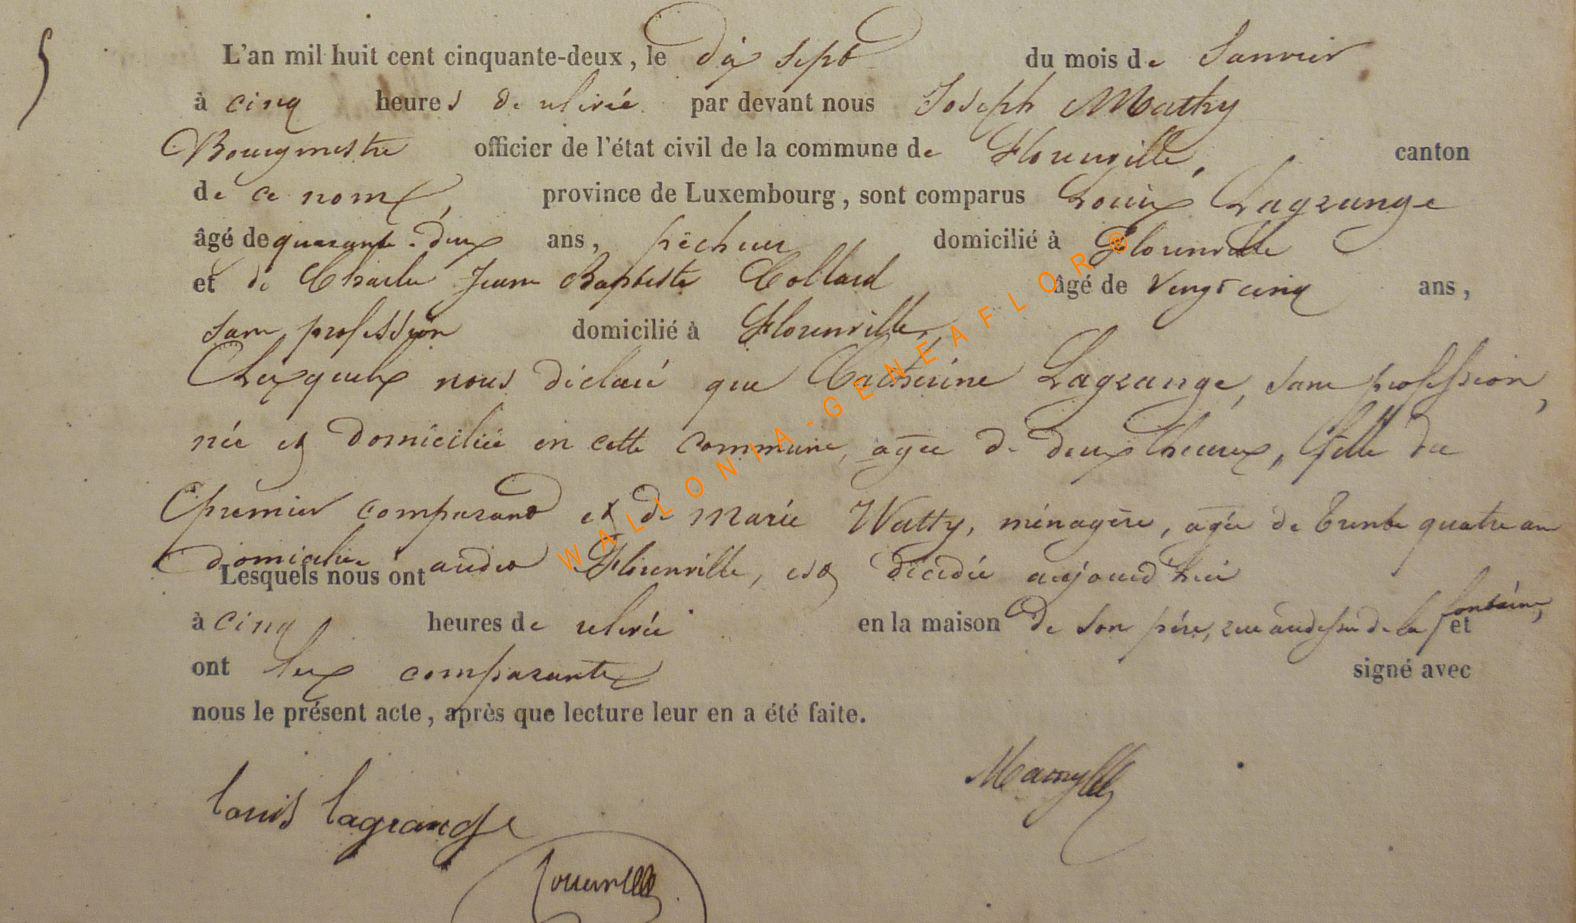 5
L'an mil huit cent cinquante-deux, le dix sept du mois de Janvier
à cinq heures de relevée par devant nous Joseph Mathy
Bourgmestre officier de l'état civil de la commune de Florenville, canton
de ce nom, province de Luxembourg, sont comparus Louis Lagrange
âgé de quarante-deux ans, pêcheur domicilié à Florenville
et de Charles Jean Baptiste Collard âgé de Vingt cinq ans,
sans profession domicilié à Florenville
Lesquels nous déclaré que Catherine Lagrange, sans profession,
née et domiciliée en cette commune, agée de deux heures, fille du
premier comparant et de Marie Watty, ménagère, agée de trente quatre ans
domiciliée audit Florenville, est décédée aujourd'hui
Lesquels nous ont
à cinq heures de relevée en la maison de son père, rue au dessus de la fontaine, et
ont les comparants signé avec
nous le présent acte, après que lecture leur en a été faite.
louis lagrange
WALLONIA-GENEAFLOR®